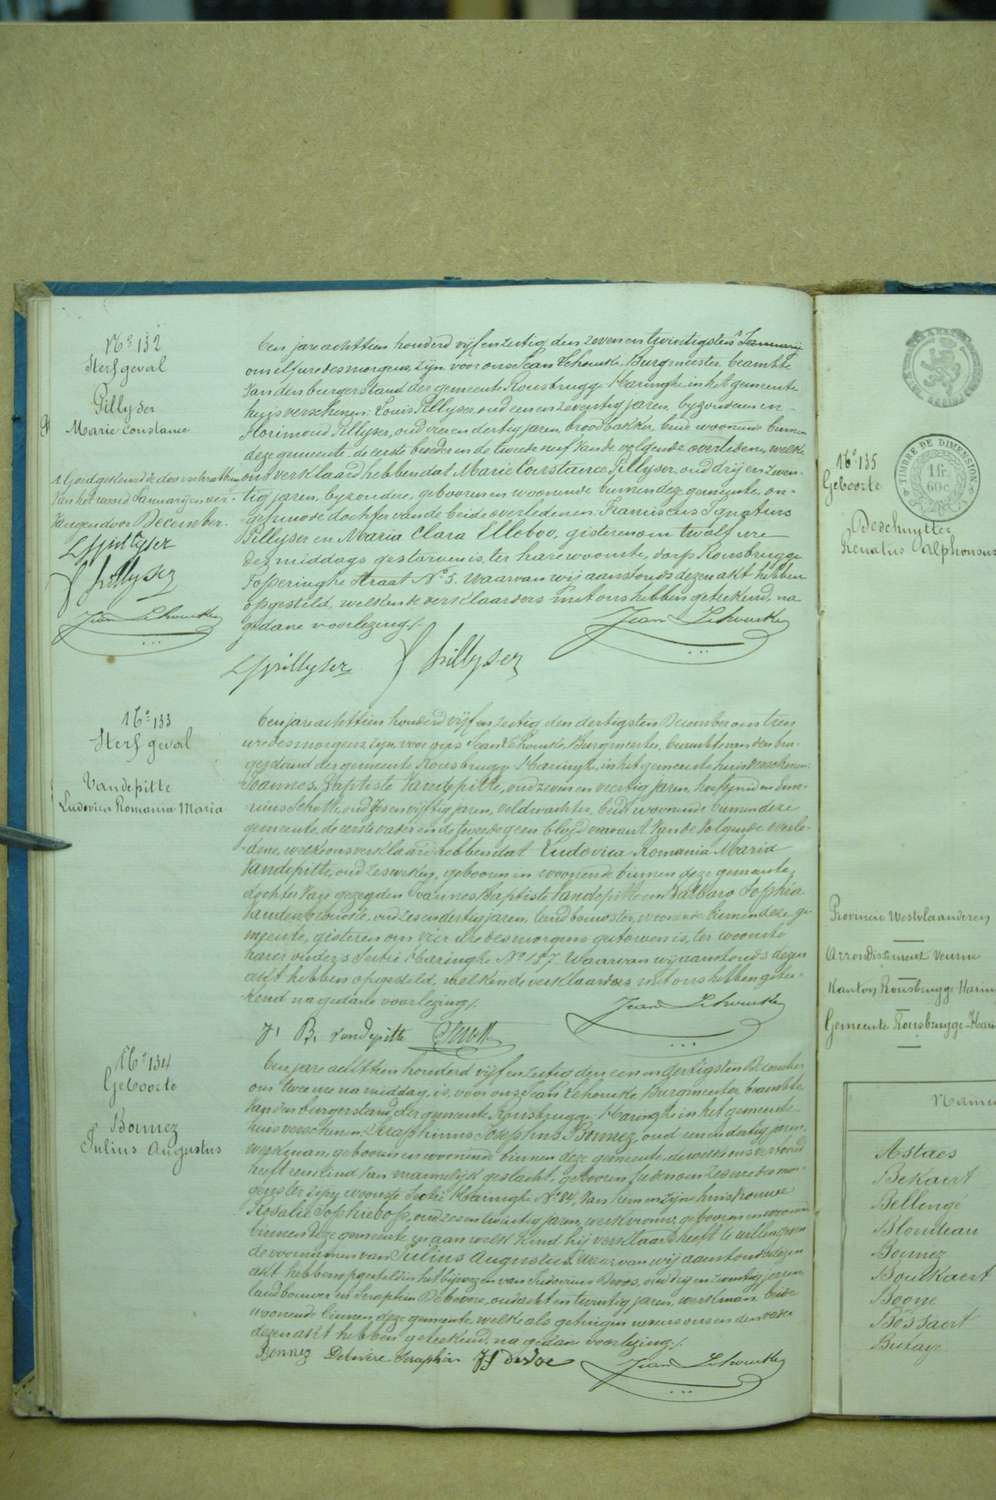 No 132
Sterfgeval
Pillyser
Marie Constance
1. Goedgekeurd de doorschrabbing
van het woord Januarij en ver-
vangen door December.
LPillyser
f Pillyser
Jean Lehoucke
Een jare achttien honderd vijf en zestig den zeven en twintigsten Januarij
om elf ure des morgens, zijn voor ons Jean Lehoucke, Burgmeester, beambte
van den burgerstand der gemeente Rousbrugge Haringhe in het gemeente
huijs verschenen: Louis Pillyser, oud een en zeventig jaren, byzonderen en
Florimond Pillyser, oud vier en dertig jaren, broodbakker, beide woonende binnen
deze gemeente, de eerste broeder en de tweede neef van de volgende overledene, welke
ons verklaard hebben dat Marie Constance Pillyser, oud drij en zeven-
tig jaren, byzondere, geboren en woonende binnen deze gemeente, on-
gehuwde dochter van de beide overledenen Franciscus Ignatius
Pillyser en Maria Clara Elleboo, gisteren om twalf ure
des middags gestorven is, ter hare woonste, dorp Rousbrugge
Poperinghe straat No 5. Waarvan wij aanstonds dezen akt hebben
opgesteld, welken de verklaarders met ons hebben geteekend, na
gedane voorlezing /.
Jean Lehoucke
LPillyser f Pillyser
No 133
Sterfgeval
Vandepitte
Ludovica Romania Maria
Een jare achttien honderd vijf en zestig den dertigsten December om tien
ure des morgens zijn voor ons Jean Lehoucke, Burgmeester, beambte van den bur-
gerstand der gemeente Rousbrugge Haringhe, in het gemeente huis verschenen:
Joannes Baptiste Vandepitte, oud zeven en veertig jaren, hoefsmid en
oud zes en vijftig jaren, veldwachter, beide woonende binnen deze
gemeente, de eerste vader en de tweede geen bloedverwant van de volgende overle-
dene, welke ons verklaard hebben dat Ludovica Romania Maria
Vandepitte, oud zes weken, geboren en woonende binnen deze gemeente,
dochter van gezegden Joannes Baptiste Vandepitte en Barbara Sophia
Vandenbroucke, oud zes en dertig jaren, woonende binnen deze ge-
meente, gisteren om vier ure des morgens gestorven is, ter woonste
harer ouders, Sectie Haringhe No 157. Waarvan wij aanstonds dezen
akt hebben opgesteld, welken de verklaarders met ons hebben getee-
kend na gedane voorlezing /.
Jean Lehoucke
J. B. Vandepitte
No 134
Geboorte
Bonnez
Julius Augustus
Een jare achttien honderd vijf en zestig den een en dertigsten December
om twee ure na middag, is voor ons Jean Lehoucke Burgmeester beambte
van den burgerstand der gemeente Rousbrugge Haringhe in het gemeente
huis verschenen: Seraphinus Josephus Bonnez, oud een en dertig jaren,
werkman, geboren en woonende binnen deze gemeente, dewelke ons vertoond
heeft een kind van mannelijk geslacht, geboren heden om zes ure des mor-
gens ter zijner woonste Sectie Haringhe No 84, van hem en zijne huisvrouwe
Rosalie Sophie Bos, oud zes en twintig jaren, werkvrouw, geboren en woonende
binnen deze gemeente, en aan welk kind hij verklaard heeft te willen geven
de voornamen van Julius Augustus. Waarvan wij aanstonds dezen
akt hebben opgesteld in het bijwezen van Ludovicus Devos, oud en twintig jaren
landbouwer en Seraphin Debevere, oud acht en twintig jaren, werkman beide
woonende binnen deze gemeente, welke als getuigen nevens ons en den vader
dezen akt hebben geteekend, na gedane voorlezing /.
Bonnez Debevere Seraphin devos Jean Lehoucke
No 135
Geboorte
TIMBRE DE DIMENSION
60c
Deschuytter
Renatus Alphonsus
Provincie Westvlaanderen
Arrondissement Veurne
Kanton Rousbrugge Harin
Gemeente Rousbrugge-Hari
Namen
Astaes
Bekaert
Bellengé
Blondeau
Bonnez
Bouckaert
Boone
Bossaert
Butaye